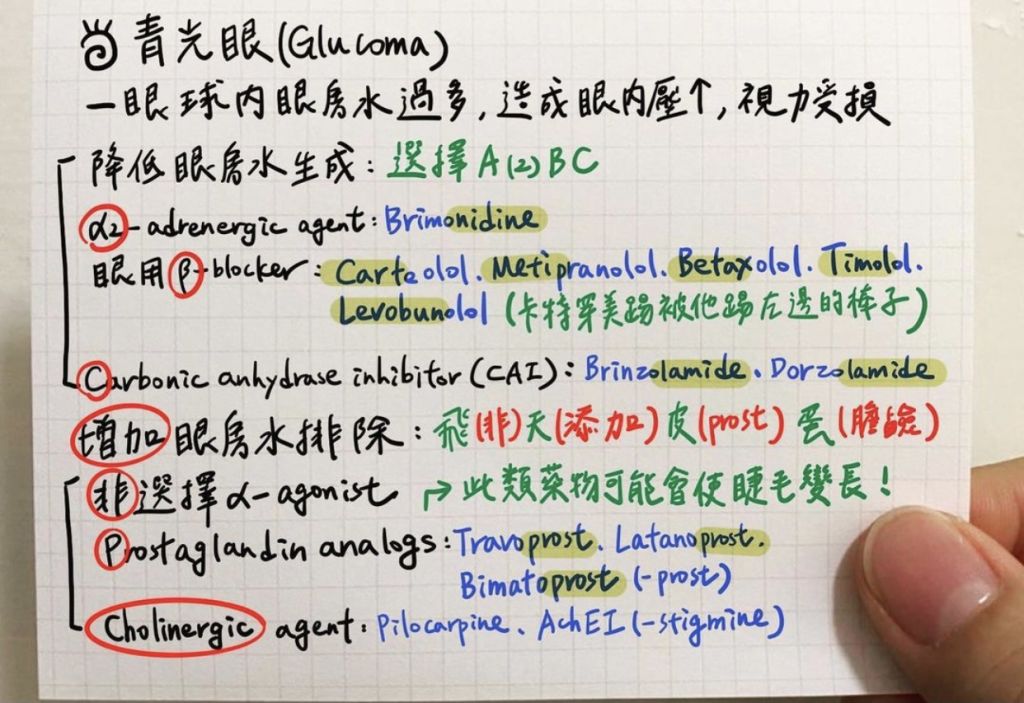 青光眼(Glucoma)
－眼球內眼房水過多,造成眼內壓↑,視力受損
降低眼房水生成:選擇A(2)BC
α2-adrenergic agent:Brimonidine
眼用β-blocker:Carteolol、Metipranolol、Betaxolol、Timolol、
Levobunolol(卡特穿美踢被他踢左邊的棒子)
Carbonic anhydrase inhibitor(CAI):Brinzolamide、Dorzolamide
增加眼房水排除:飛(非)天(添加)皮(prost)蛋(膽鹼)
非選擇α-agonist →此類藥物可能會使睫毛變長!
Prostaglandin analogs:Travoprost、Latanoprost、
Bimatoprost(-prost)
Cholinergic agent:Pilocarpine、AchEI(-stigmine)